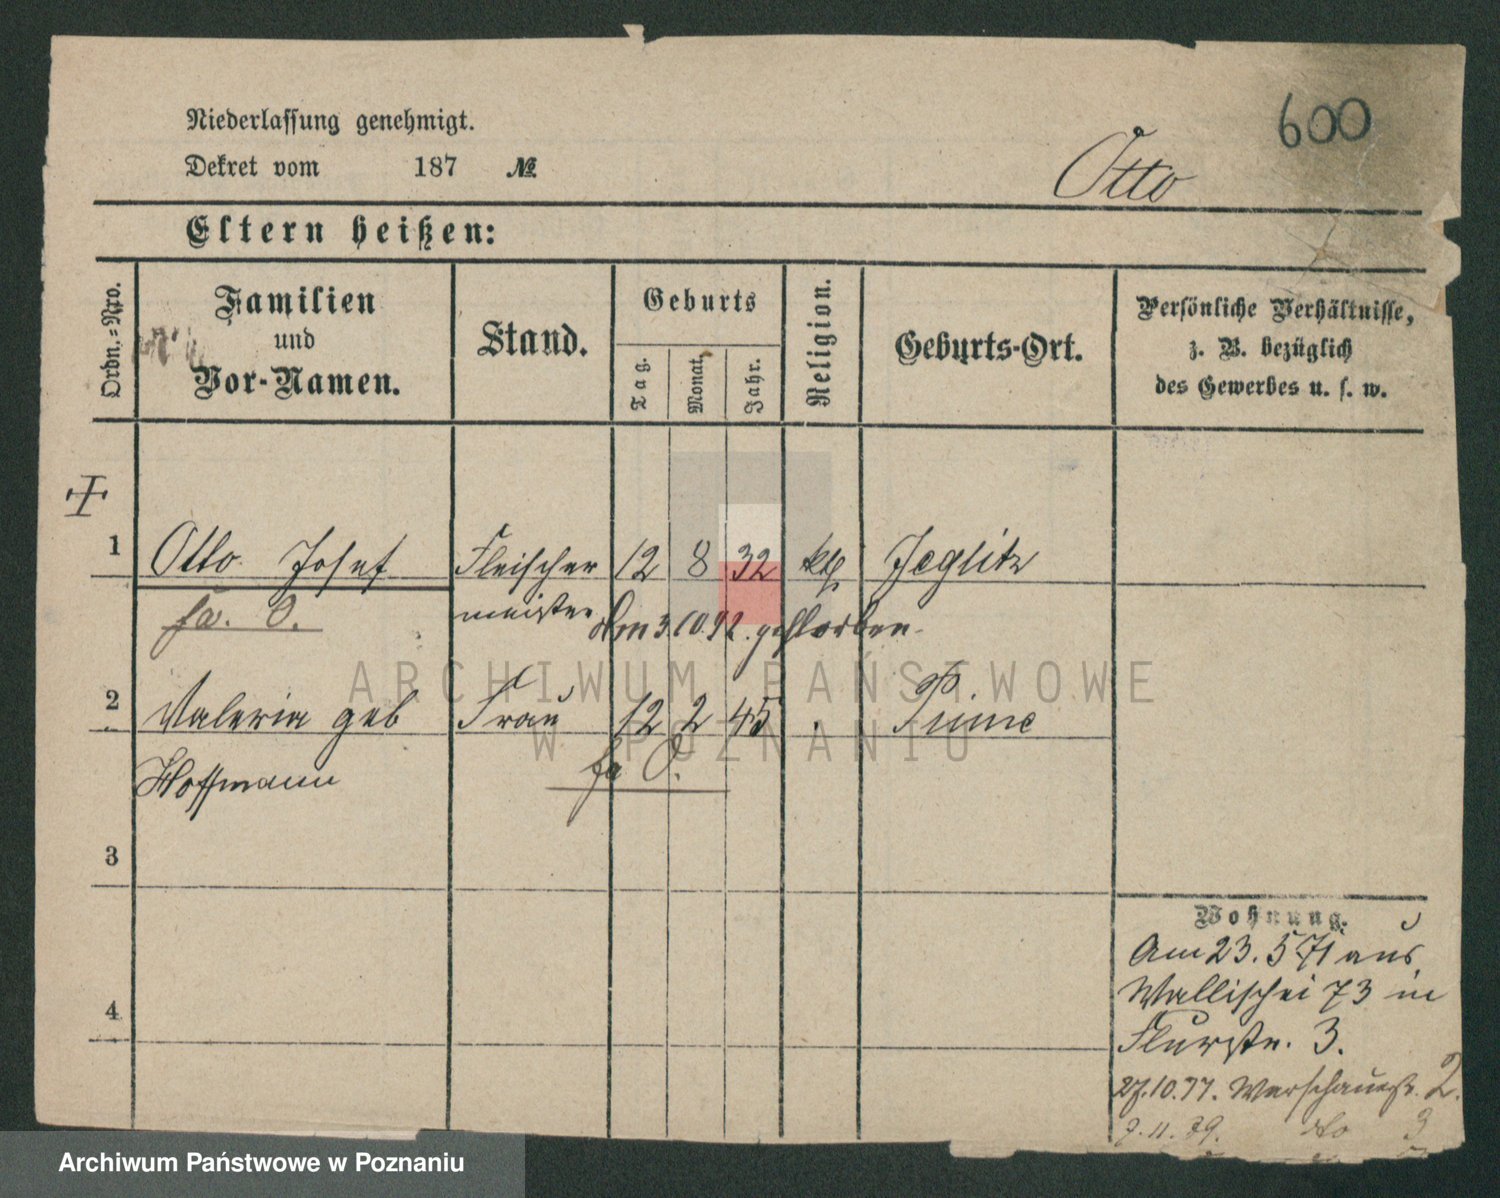 600
Niederlassung genehmigt.
Dekret vom 187 №
Otto
Eltern heißen:
Ordn.-Nro.
Familien und Vor-Namen.
Stand.
Geburts
Tag.
Monat.
Jahr.
Religion.
Geburts-Ort.
Persönliche Verhältnisse,
z. B. bezüglich
des Gewerbes u. s. w.
1 Otto Josef Fleischer 12 8 32 kth Jeglitz
meister
fa. O.
Am 3.10.92. gestorben.
P.
2 Valeria geb Frau 12 2 45 Pinne
Hoffmann
fa O.
3
4
Wohnung.
Am 23. 5 71 aus
Wallischei 73 in
Flurstr. 3.
27.10.77. Warschauerstr. 2.
do 3
ARCHIWUM PAŃSTWOWE
W POZNANIU
Archiwum Państwowe w Poznaniu